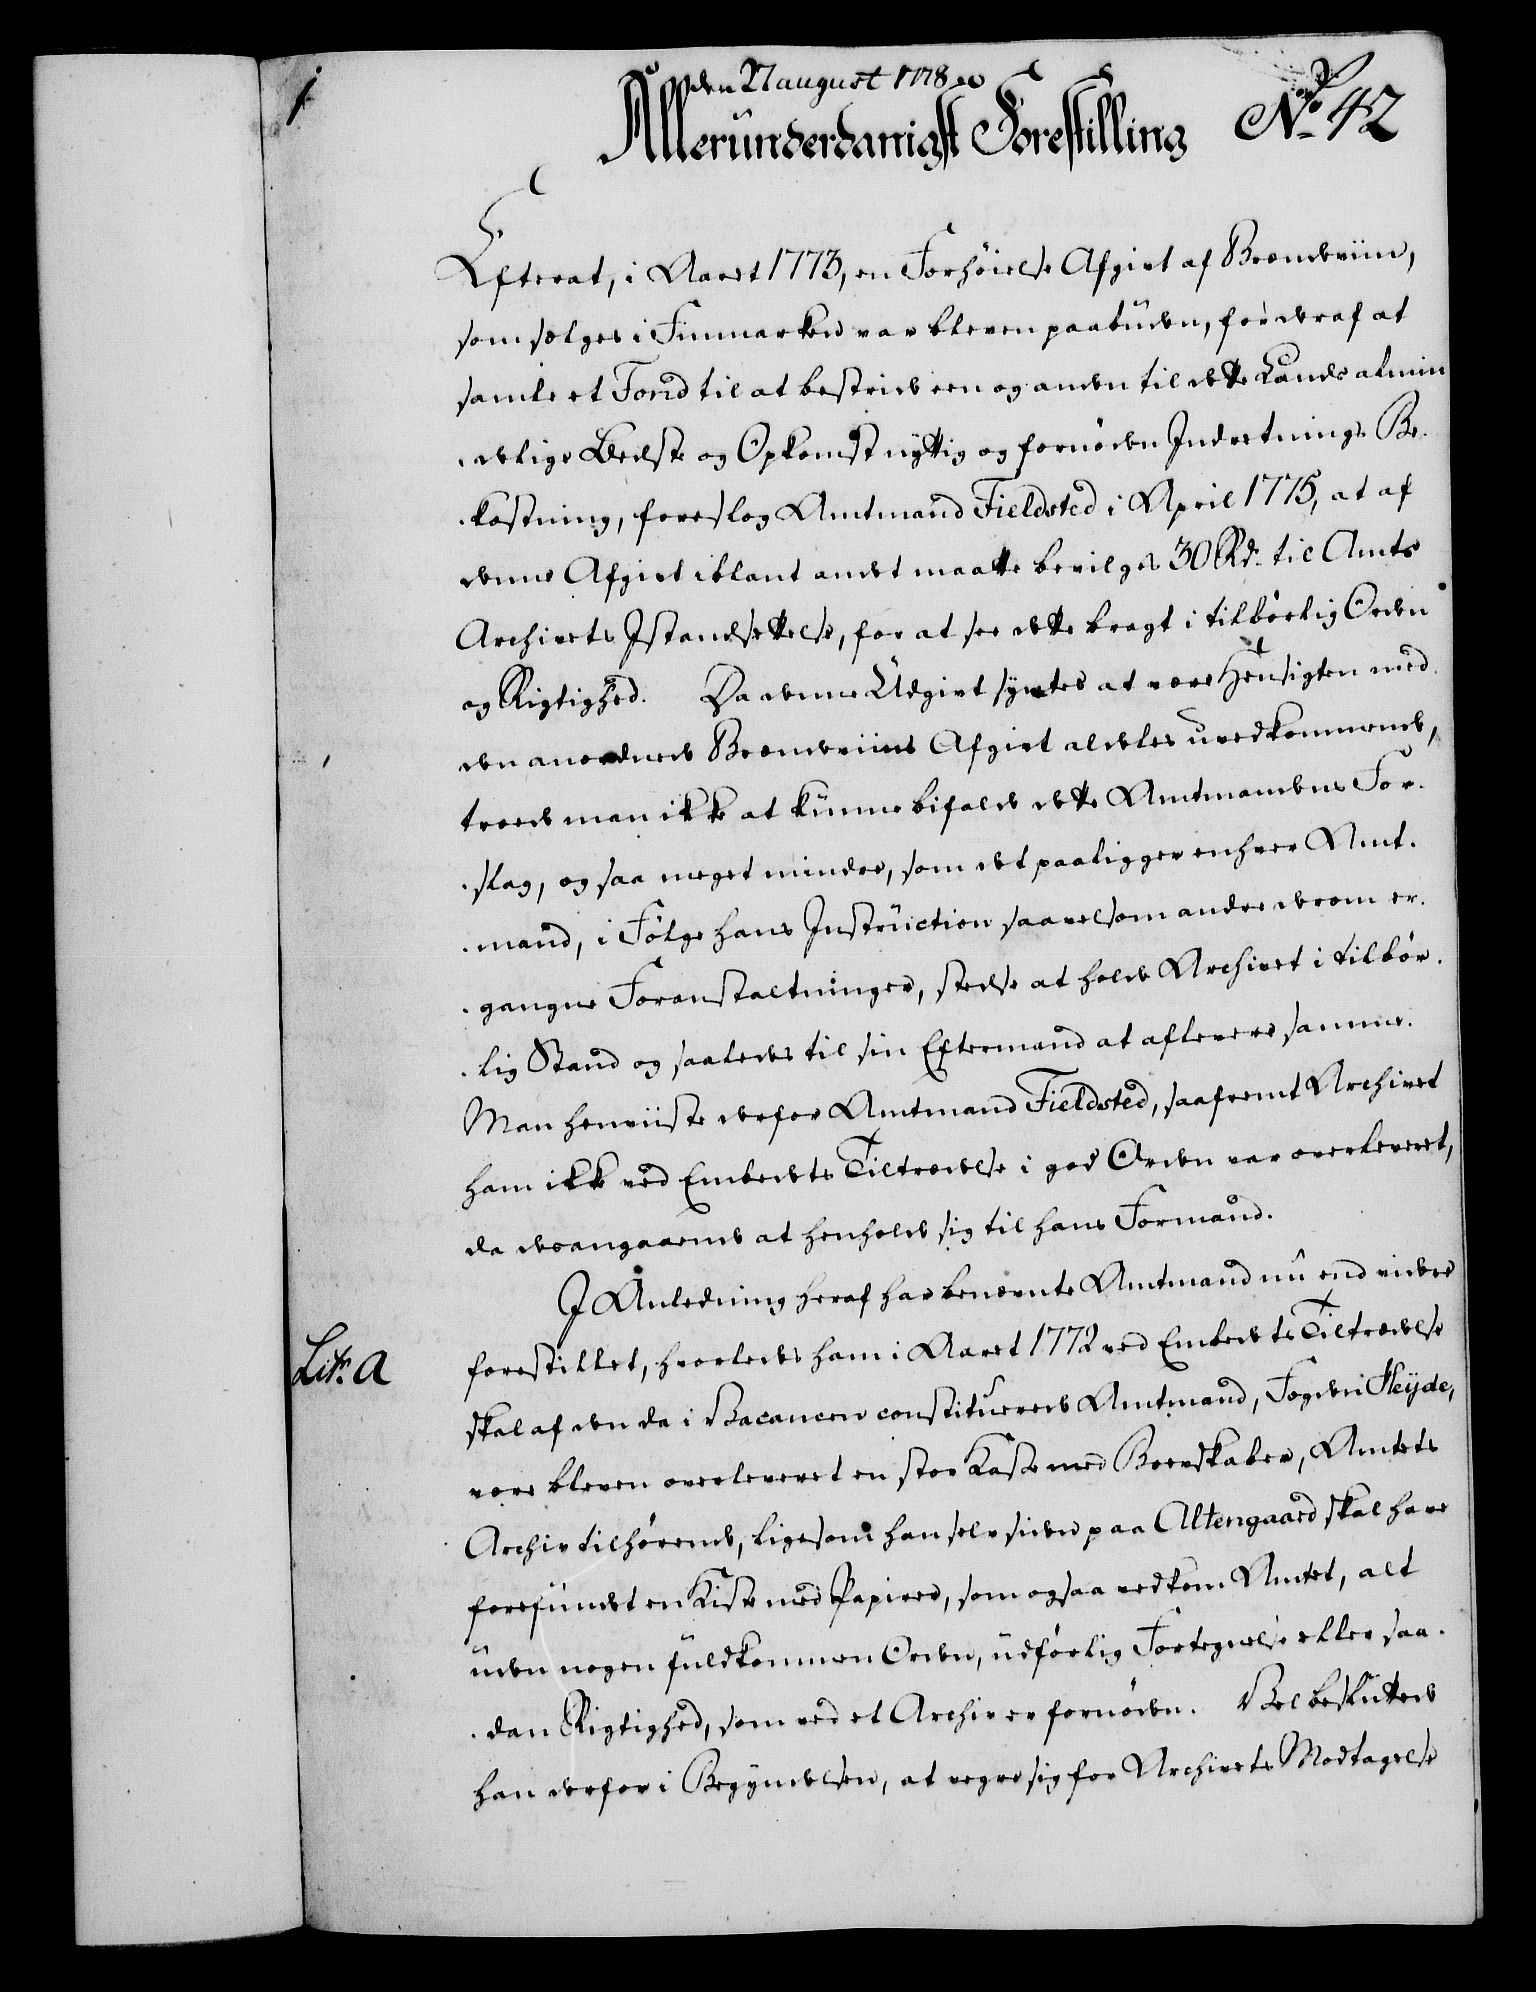 1
den 27 august 1778
Allerunderdanigst Forestilling No 42
Efterat, i Aaret 1773, en Forhöielse Afgivt af Brændeviin,
som sælges i Finmarken var bleven paabuden, for deraf at
samle et Fond til at bestride een og anden til dette Lands almin
delige Bedste og Opkomst nyttig og fornöden Indretnings Be-
kostning, foreslog Amtmand Fieldsted i April 1775, at af
denne Afgivt iblant andet maatte bevilges 30 Rd. til Amts
Archivets Istandsettelse, for at see dette bragt i tilbörlig Orden
og Rigtighed. Da denne Udgivt syntes at være Hensigten med
den anordnede Brændeviins Afgivt aldeles uvedkommende,
troede man ikke at kunne bifalde dette Amtmandens For-
slag, og saa meget mindre, som det paaligger enhver Amt-
mand, i Fölge hans Instruction saavelsom andre derom er-
gangne Foranstaltninger, stedse at holde Archivet i tilbör-
lig Stand og saaledes til sin Eftermand at aflevere samme.
Man henviiste derfor Amtmand Fieldsted, saafremt Archivet
ham ikke ved Embedets Tiltrædelse i god Orden var overleveret,
da desangaaende at henholde sig til hans Formand.
I Anledning heraf har benævnte Amtmand nu end videre
Litr. a
forestillet, hvorledes ham i Aaret 1772 ved Embedets Tiltrædelse
skal af den da i Vacancen constituerede Amtmand, Fogden Heyde,
være bleven overleveret en stor Kaste med Brevskaber, Amtets
Archiv tilhörende, ligesom han selv siden paa Altengaard skal have
forefundet en Kiste med Papirer, som ogsaa vedkom Amtet, alt
uden nogen fuldkommen Orden, udförlig Fortegnelse eller saa-
dan Rigtighed, som ved et Archiv er fornöden. Vel besluttede
han derfor i Begyndelsen, at vegre sig for Archivets Modtagelse